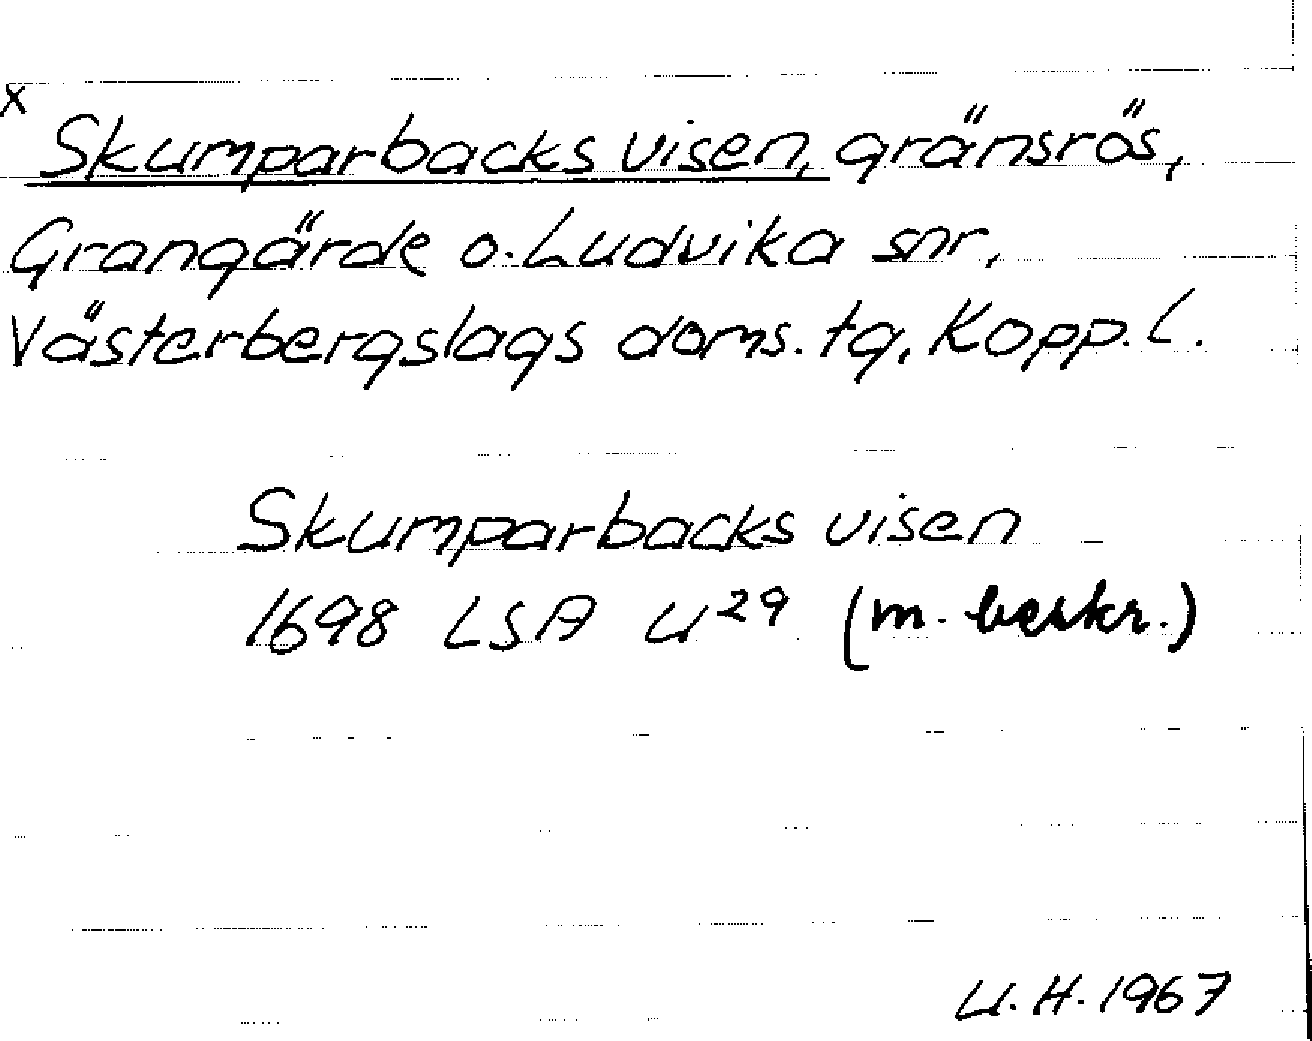 x
Skumparbacks visen, gränsrös,
Grangärde o. Ludvika snr,
Västerbergslags doms. tg, Kopp. l.
Skumparbacks visen
1698 LSA U²⁹ (m. beskr.)
U. H. 1967